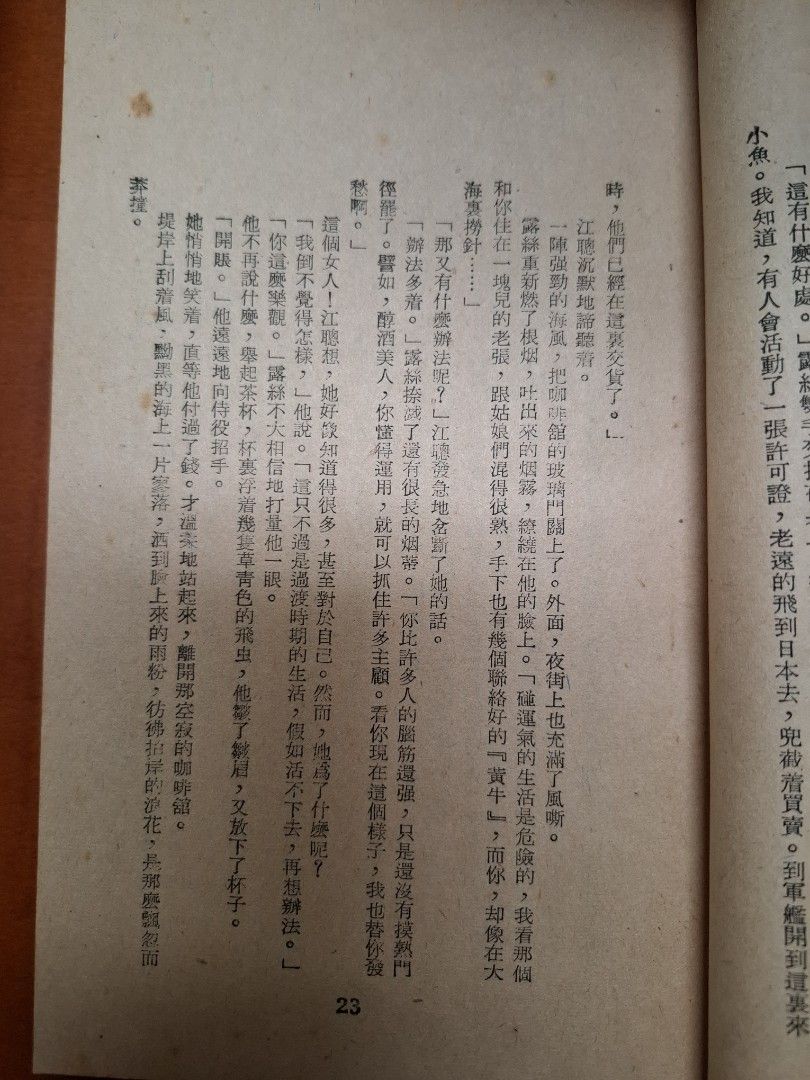 「這有什麽好處。」露絲
小魚。我知道，有人會活動了一張許可證，老遠的飛到日本去，兜截着買賣。到軍艦開到這裏來
時，他們已經在這裏交貨了。」
江聰沉默地諦聽着。
一陣强勁的海風，把咖啡舘的玻璃門闢上了。外面，夜街上也充滿了風嘶。
露絲重新燃了根烟，吐出來的烟霧，繚繞在他的臉上。「碰運氣的生活是危險的，我看那個
和你住在一塊兒的老張，跟姑娘們混得很熟，手下也有幾個聯絡好的『黃牛』，而你，却像在大
海裏撈針……」
「那又有什麽辦法呢？」江聰發急地岔斷了她的話。
「辦法多着。」露絲捺滅了還有很長的烟蒂。「你比許多人的腦筋還强，只是還沒有摸熟門
徑罷了。譬如，醇酒美人，你懂得運用，就可以抓住許多主顧。看你現在這個樣子，我也替你發
愁啊。」
這個女人！江聰想，她好像知道得很多，甚至對於自己。然而，她爲了什麽呢？
「我倒不覺得怎樣，」他說。「這只不過是過渡時期的生活，假如活不下去，再想辦法。」
「你這麽樂觀。」露絲不大相信地打量他一眼。
他不再說什麽，舉起茶杯，杯裏浮着幾隻草青色的飛虫，他皺了皺眉，又放下了杯子。
「開賬。」他遠遠地向侍役招手。
她悄悄地笑着，直等他付過了錢。才溫柔地站起來，離開那空寂的咖啡舘。
堤岸上刮着風，黝黑的海上一片寥落，洒到臉上來的雨粉，彷彿拍岸的浪花，是那麽飄忽而
莽撞。
23